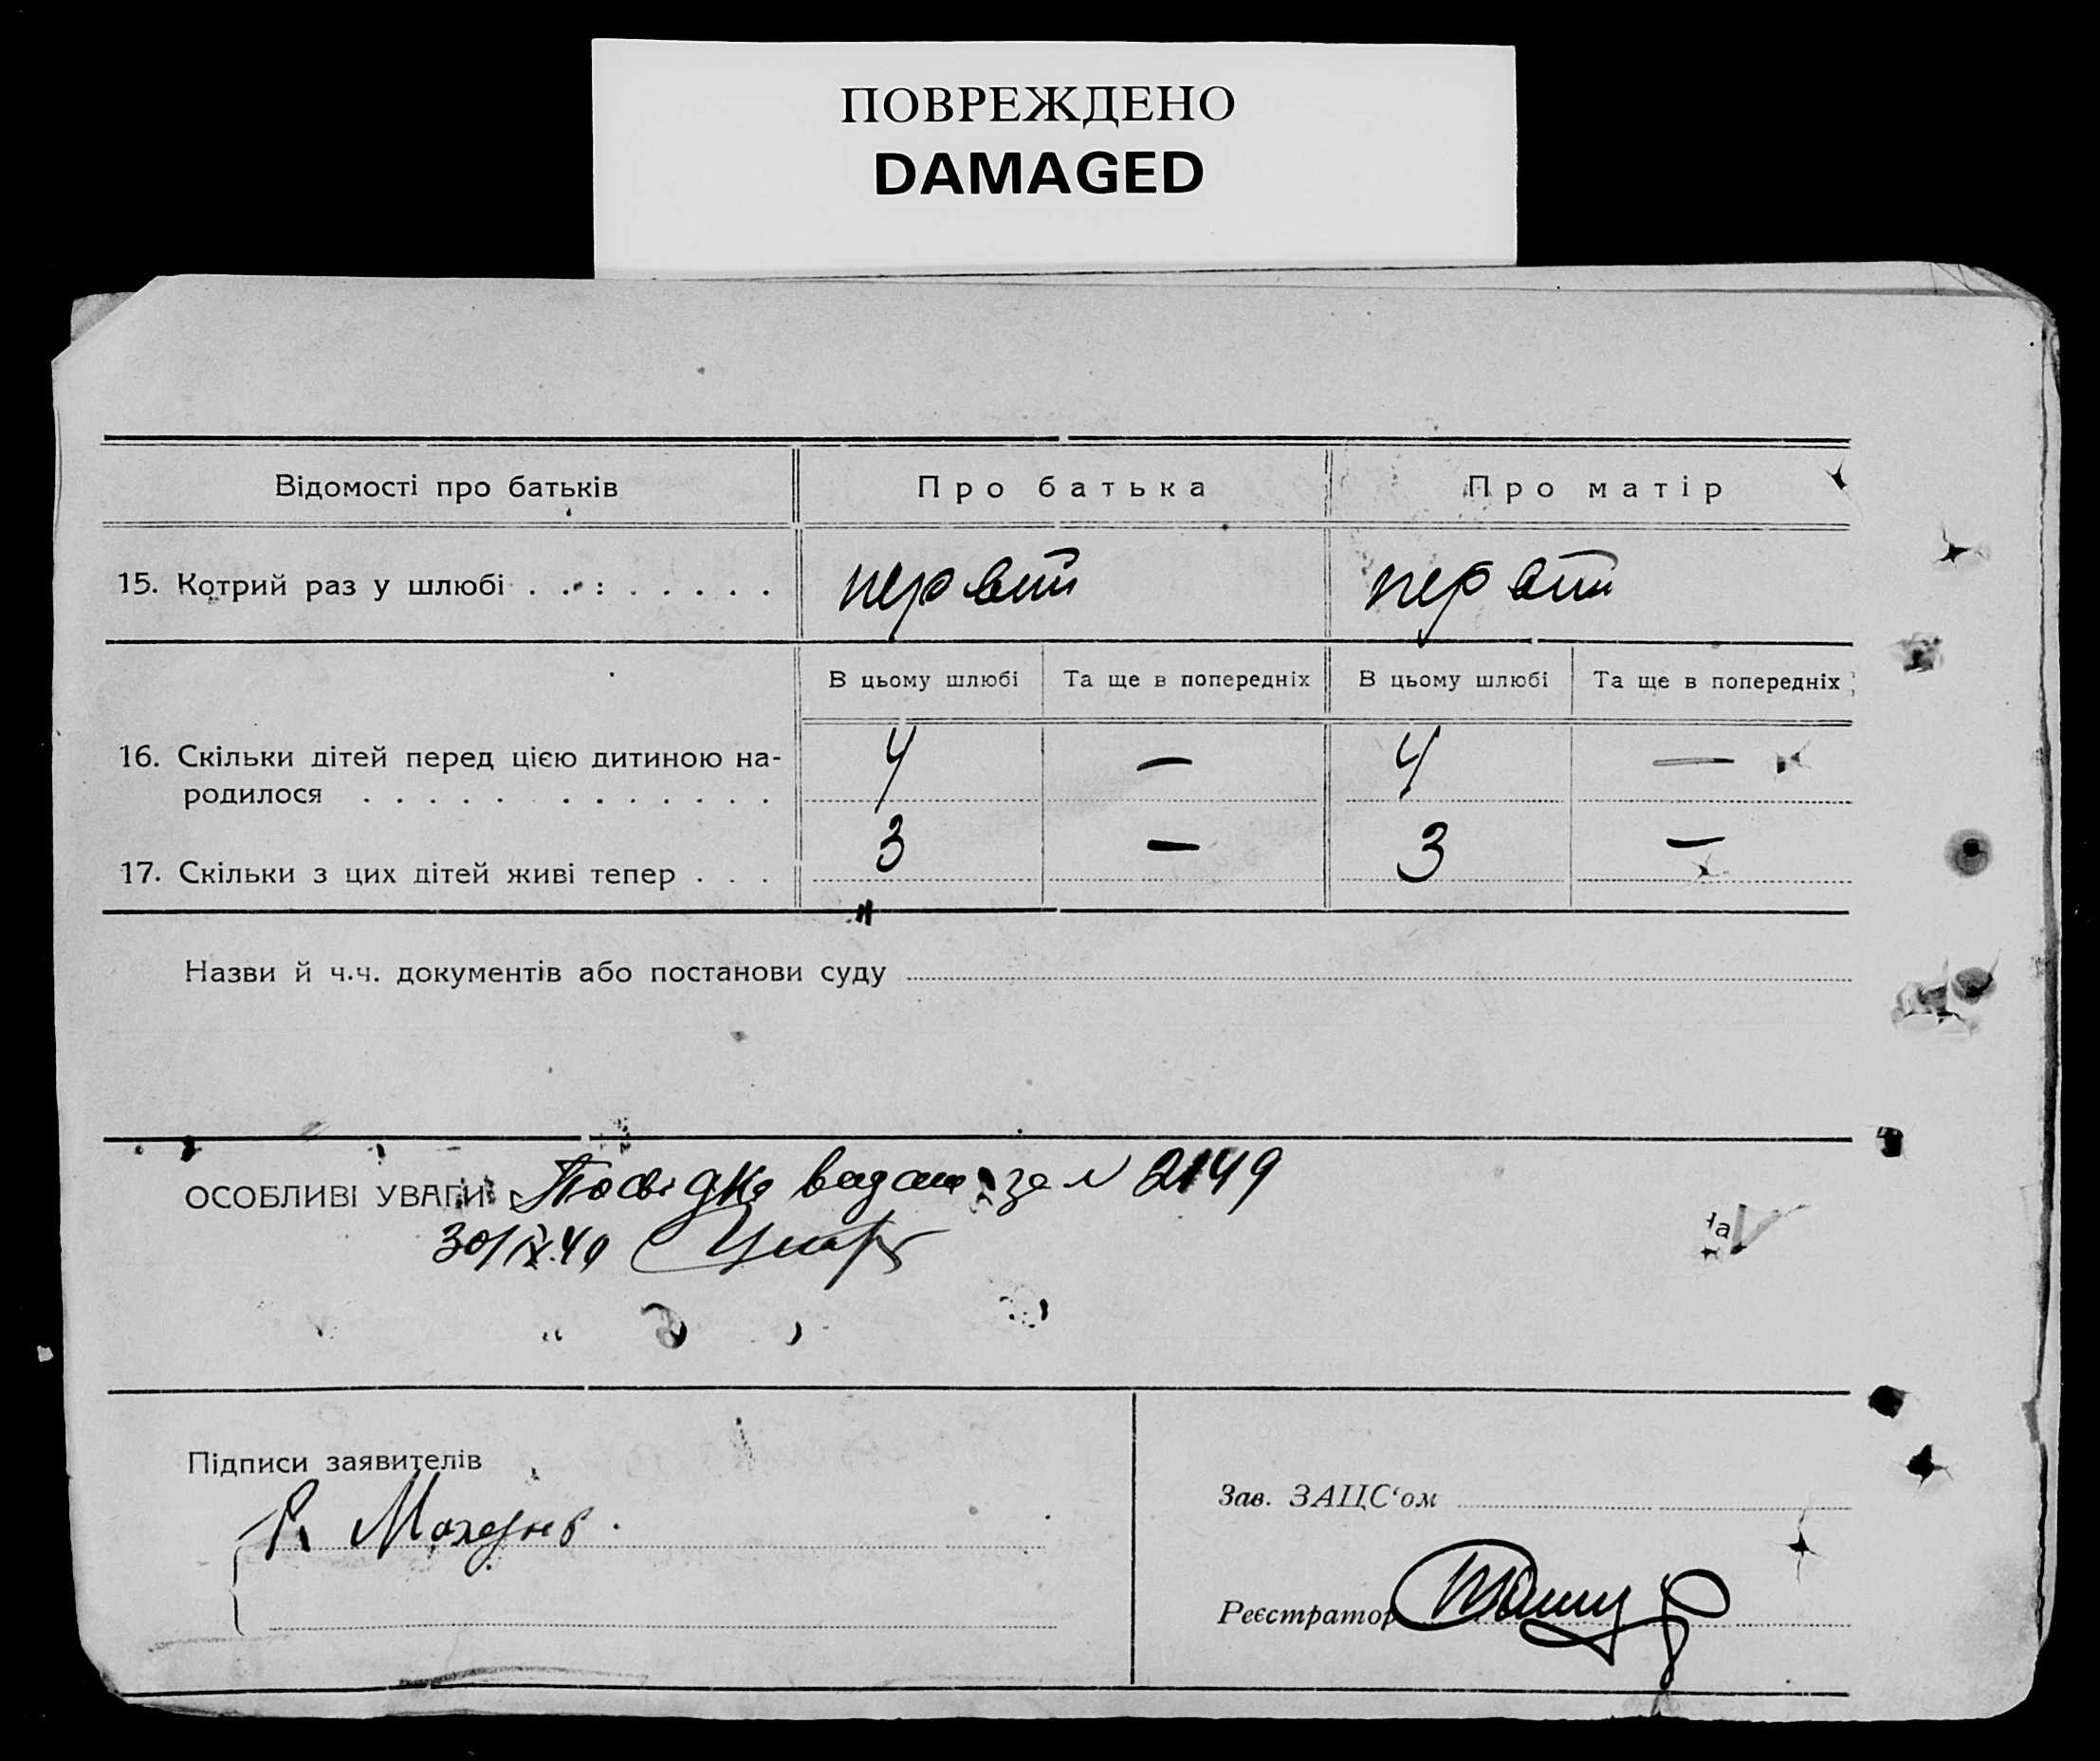 ПОВРЕЖДЕНО
DAMAGED
Відомості про батьків
Про батька
Про матір
15. Котрий раз у шлюбі
первий
первий
В цьому шлюбі
Та ще в попередніх
В цьому шлюбі
Та ще в попередніх
16. Скільки дітей перед цією дитиною на-
родилося
4 — 4 —
17. Скільки з цих дітей живі тепер
3 — 3 —
Назви й ч.ч. документів або постанови суду
ОСОБЛИВІ УВАГИ: Посвідка видана за N 2149
30/IX.40
на
Підписи заявителів
Зав. ЗАЦС‘ом
Реєстратор